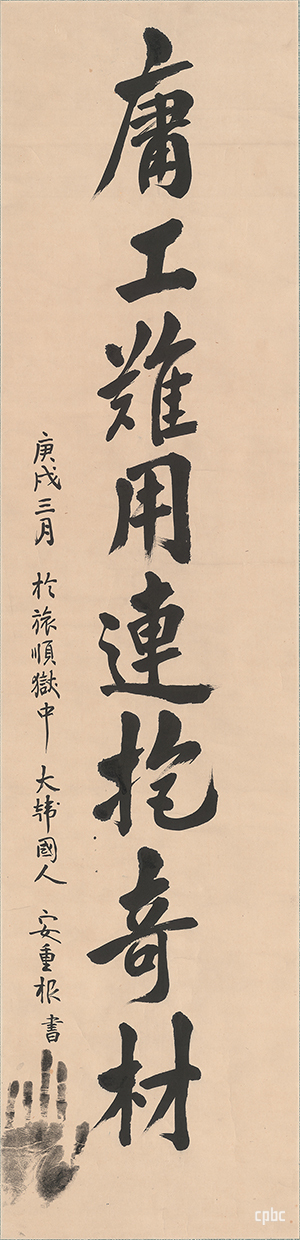 庸工難用連抱奇材
庚戌三月 於旅順獄中 大韓國人 安重根 書
cpbc